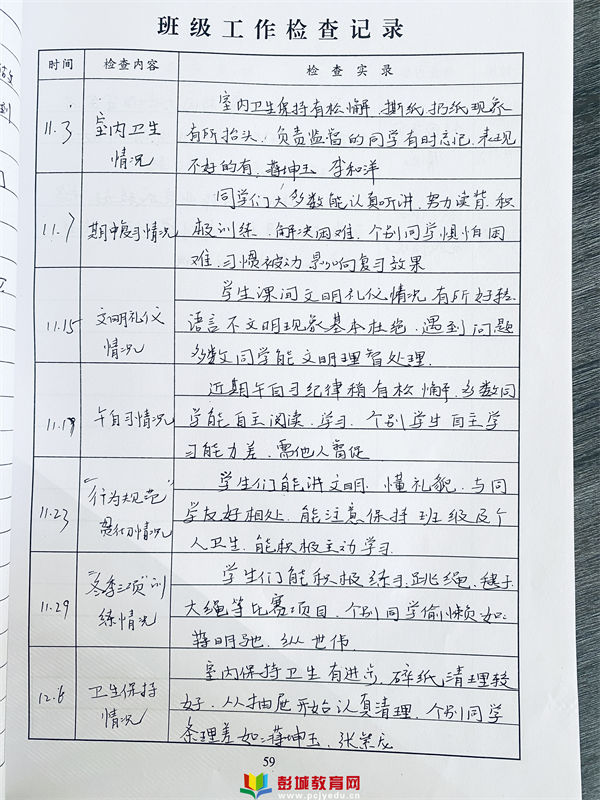 班级工作检查记录
时间 检查内容 检查实录
11.3 室内卫生情况
室内卫生保持有松懈,撕纸扔纸现象
有所抬头,负责监督的同学有时忘记,表现
不好的有,蒋坤玉 李和洋
11.7 期中复习情况
同学们大多数能认真听讲,努力读背,积
极训练,解决困难,个别同学惧怕困
难,习惯被动 影响复习效果
11.15 文明礼仪情况
学生课间文明礼仪情况有所好转,
语言不文明现象基本杜绝,遇到问题
多数同学能文明理智处理.
11.19 午自习情况
近期午自习纪律稍有松懈,多数同
学能自主阅读、学习,个别学生自主学
习能力差,需他人督促
11.23 "行为规范"贯彻情况
学生们能讲文明,懂礼貌,与同
学友好相处,能注意保持班级及个
人卫生,能积极主动学习.
11.29 "冬季三项"训练情况
学生们能积极练习跳绳、毽子、
大绳等比赛项目,个别同学偷懒如:
蒋明驰,纵世伟
12.6 卫生保持情况
室内保持卫生有进步,碎纸清理较
好,从抽屉开始认真清理,个别同学
条理差如:蒋坤玉、
59
彭城教育网
www.pcjyedu.cn